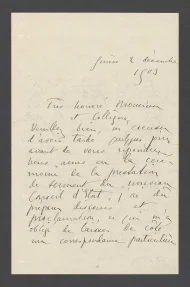 Genève 8 décembre
1903
Très honoré Monsieur
et Collègue
Veuillez bien, m'excuser
d'avoir tardé jusqu'à
avant de vous répondre.
Nous avons eu la céré-
monie de la prestation
de serment du nouveau
Conseil d'Etat, j'ai dû
préparer discours et
proclamation, ce qui m'a
obligé de laisser de côté
ma correspondance particulière